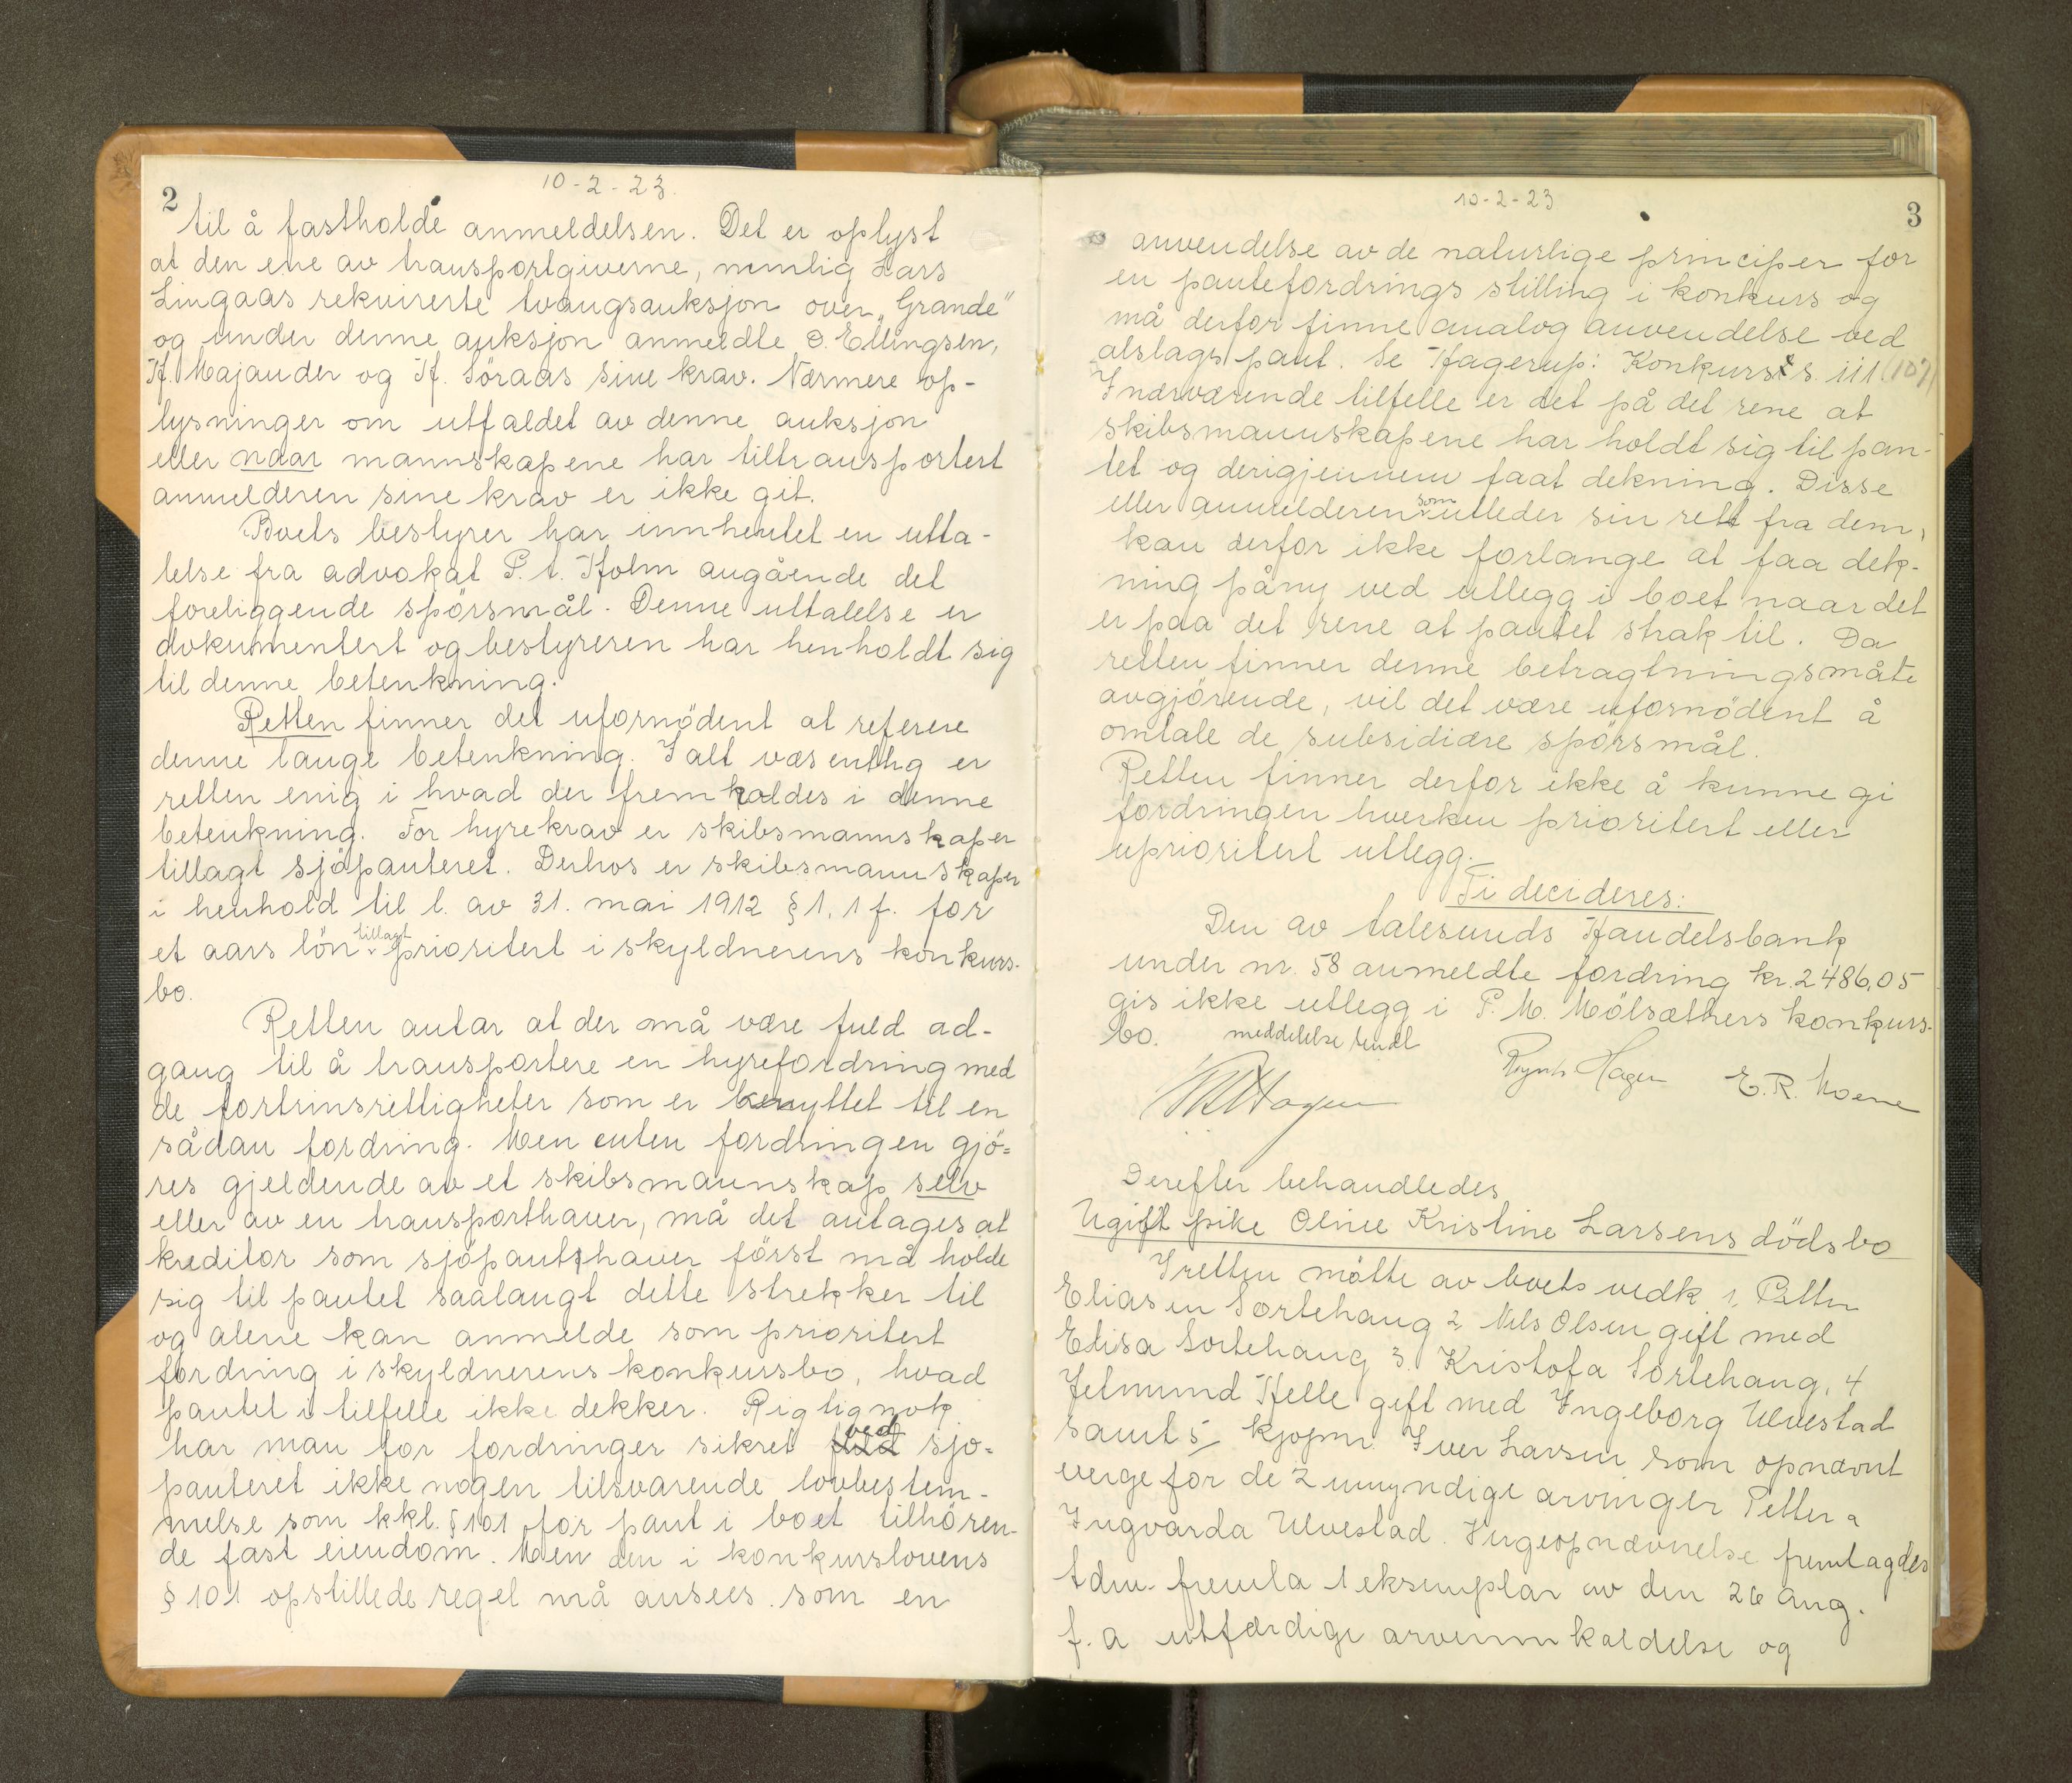 2
10-2-23.
til å fastholde anmeldelsen. Det er oplyst
at den ene av transportgiverne, nemlig Lars
Lingaas rekvirerte tvangsauksjon over "Grande"
og under denne auksjon anmeldte O. Ellingsen,
H. Majander og H. Söraas sine krav. Nærmere op-
lysninger om utfaldet av denne auksjon
eller naar mannskapene har tiltransportert
anmelderen sine krav er ikke git.
Boets bestyrer har innhentet en utta-
lelse fra advokat P. A. Holm angående det
foreliggende spörsmål. Denne uttalelse er
dokumentert og bestyreren har henholdt sig
til denne betenkning.
Retten finner det ufornödent at referere
denne lange betenkning. I alt væsentlig er
retten enig i hvad der fremholdes i denne
betenkning. For hyrekrav er skibsmannskaper
tillagt sjöpanteret. Derhos er skibsmannskaper
i henhold til l. av 31. mai 1912 § 1, 1 f. for
et aars lön tillagt prioritert i skyldnerens konkurs-
bo.
Retten antar at der må være fuld ad-
gang til å transportere en hyrefordring med
de fortrinsrettigheter som er benyttet til en
sådan fordring. Men enten fordringen gjö-
res gjeldende av et skibsmannskap selv
eller av en transporthaver, må det antages at
kreditor som sjöpanthaver först må holde
sig til pantet saalangt dette strekker til
og alene kan anmelde som prioritert
fordring i skyldnerens konkursbo, hvad
pantet i tilfelle ikke dekker. Rigtignok
har man for fordringer sikret ved sjö-
panteret ikke nogen tilsvarende lovbestem-
melse som kkl. § 101 for pant i boet tilhören-
de fast eiendom. Men den i konkurslovens
§ 101 opstillede regel må ansees som en
10-2-23
3
anvendelse av de naturlige principer for
en pantefordrings stilling i konkurs og
må derfor finne analog anvendelse ved
alslags pant. Se Hagerup: Konkurs s. 111 (107)
I nærværende tilfelle er det på det rene at
skibsmannskapene har holdt sig til pan-
tet og derigjennem faat dekning. Disse
eller anmelderen som utleder sin rett fra dem,
kan derfor ikke forlange at faa dek-
ning påny ved utlegg i boet naar det
er paa det rene at pantet strak til. Da
retten finner denne betragtningsmåte
avgjörende, vil det være ufornödent å
omtale de subsidiære spörsmål.
Retten finner derfor ikke å kunne gi
fordringen hverken prioritert eller
uprioritert utlegg.
Ti decideres:
Den av Aalesunds Handelsbank
under nr. 58 anmeldte fordring kr. 2486,05
gis ikke utlegg i P. M. Mölsæthers konkurs-
bo. meddelelse sendt
Hagen E. R. Moene
Derefter behandledes
Ugift pike Oline Kristine Larsens dödsbo
I retten mötte av boets vedk. 1, Petter
Eliasen Sortehaug 2 Nils Olsen gift med
Elisa Sortehaug 3. Kristofa Sortehaug, 4
Jetmund Helle gift med Ingeborg Ulvestad
samt 5 kjöpm. Iver Larsen som opnævnt
verge for de 2 umyndige arvinger Petter
Ingvarda Ulvestad. Vergeopnævnelse fremlagdes
Adm. fremla 1 eksemplar av den 26 aug.
f. a utfærdige arveinnkaldelse og